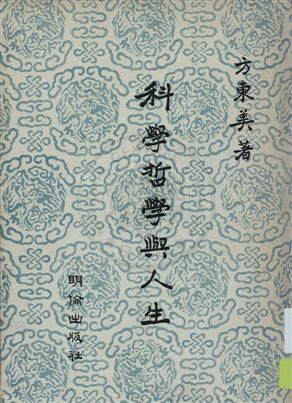 方東美著
科學哲學與人生
明倫出版社